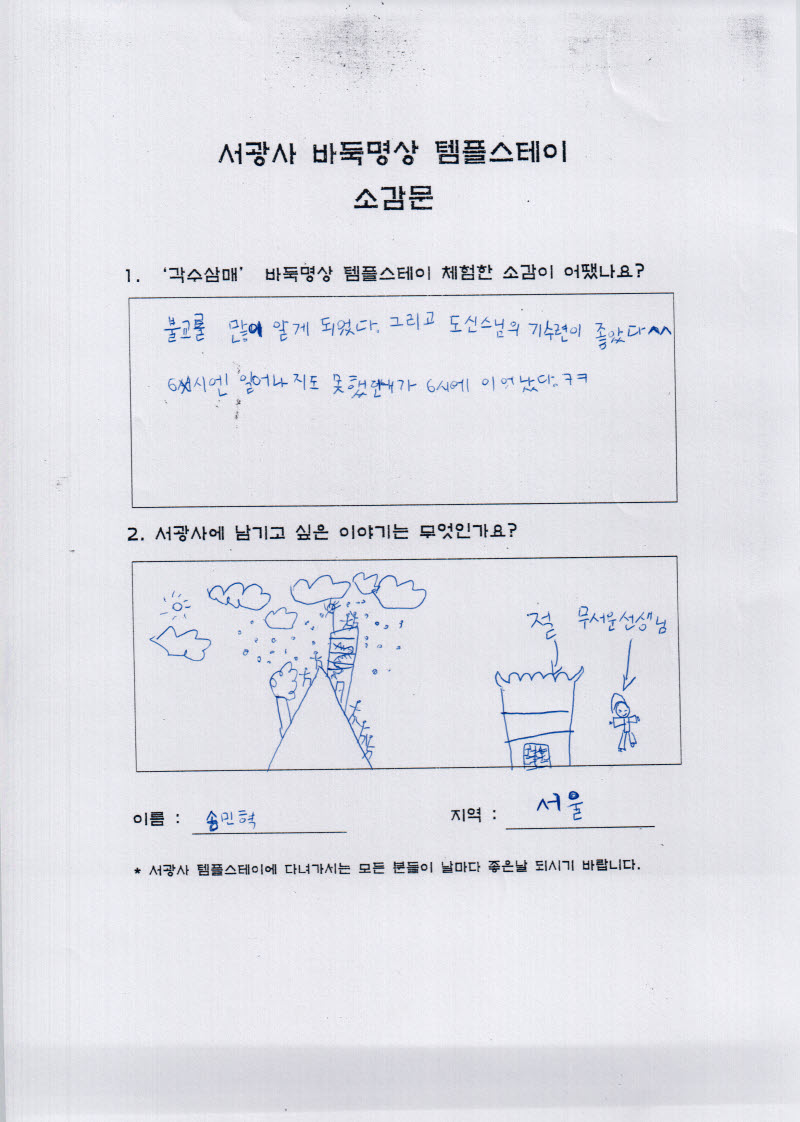 서광사 바둑명상 템플스테이
소감문
1. '각수삼매' 바둑명상 템플스테이 체험한 소감이 어땠나요?
불교를 많이 알게 되었다. 그리고 도신스님의 기수련이 좋았다^^
6시엔 일어나지도 못했던내가 6시에 이어났다.ㅋㅋ
2. 서광사에 남기고 싶은 이야기는 무엇인가요?
절 무서운선생님
이름 : 송민혁 지역 : 서울
* 서광사 템플스테이에 다녀가시는 모든 분들이 날마다 좋은날 되시기 바랍니다.